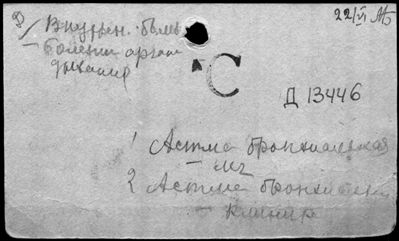 Внутрен. бол.
Болезни орган
дыхания
22/VI
С
Д 13446
1 Астма бронхиальная
2 Астма бронхиальн
клинич